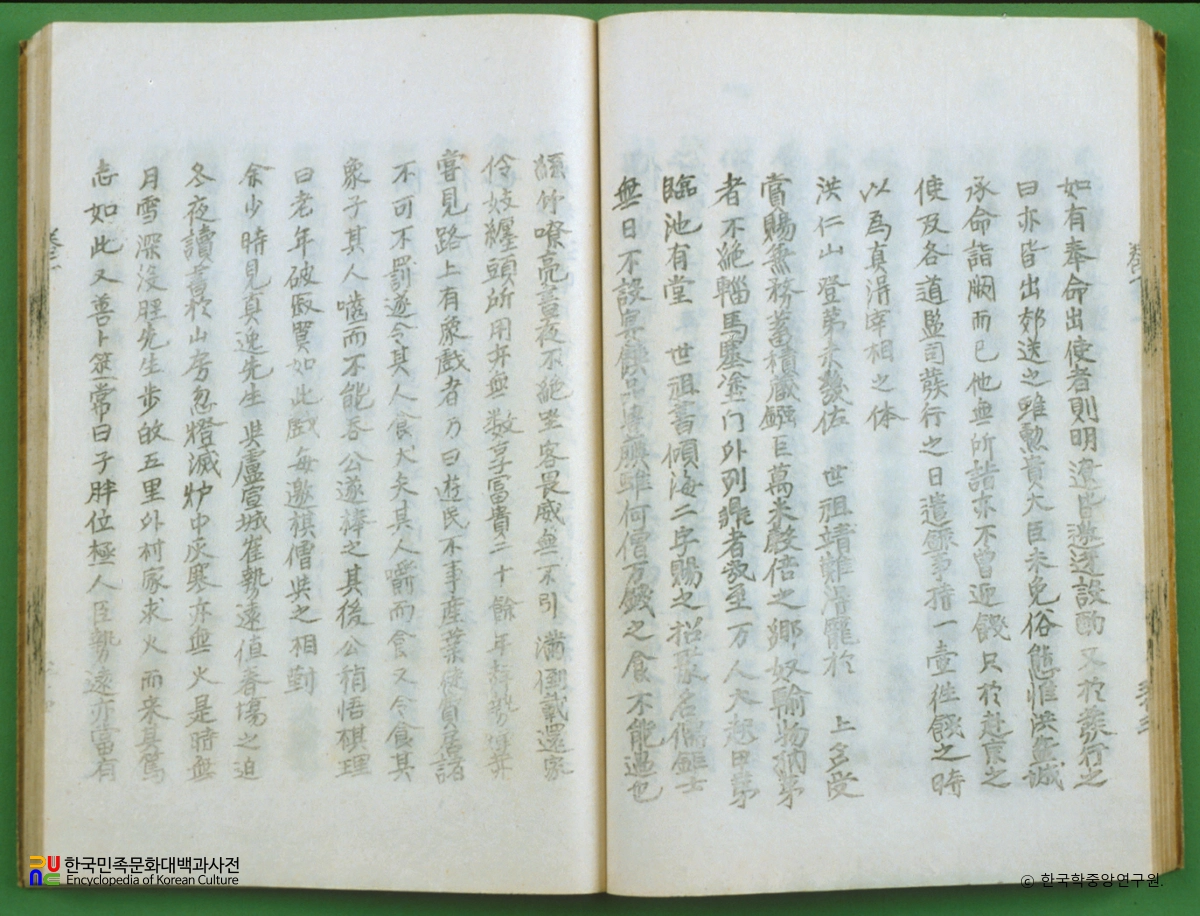 如有奉命出使者則明逮皆邀迓設酌又於發行之
曰亦皆出郊送之雖勲貴大臣未免俗態惟洪益城
承命詣闕而已他無所詣亦不曾迎餞只於赴京之
使及各道監司發行之日遣錄事持一壹往餞之時
以爲眞淂宰相之体
洪仁山登第未幾佐 世祖靖難潛寵於 上多受
賞賜無務蓄積歲鎰巨萬米穀倍之鄕奴輸物抦第
者不絶輜馬塞塗門外列肆者幾至万人大起田第
臨池有堂 世祖書傾海二字賜之招豪名儒鉅士
無日不設具饌品專廉雖何僧万錢之食不能過也
絲竹嘹亮晝夜不絶坐客畏威無不引滿倒載還家
伶妓纏頭所用亦無数享冨貴二十餘年
嘗見路上有象戱者乃曰遊民不事産業
不可不罰遂令其人食犬矢其人嚼而食又令食其
象子其人噛而不能呑公遂棒之其後公稍悟碁理
曰老年破寂賢如此戱每邀棋僧與之相對
余少時見眞逸先生與盧宣城崔勢遠値春塲之迫
冬夜讀書於山房忽燈滅炉中灰寒亦無火是時無
月雪深沒脛先生步啟五里外村家求火而来其篤
志如此又善卜筮常曰子胖位極人臣勢遠亦富有
한국민족문화대백과사전
Encyclopedia of Korean Culture
© 한국학중앙연구원.